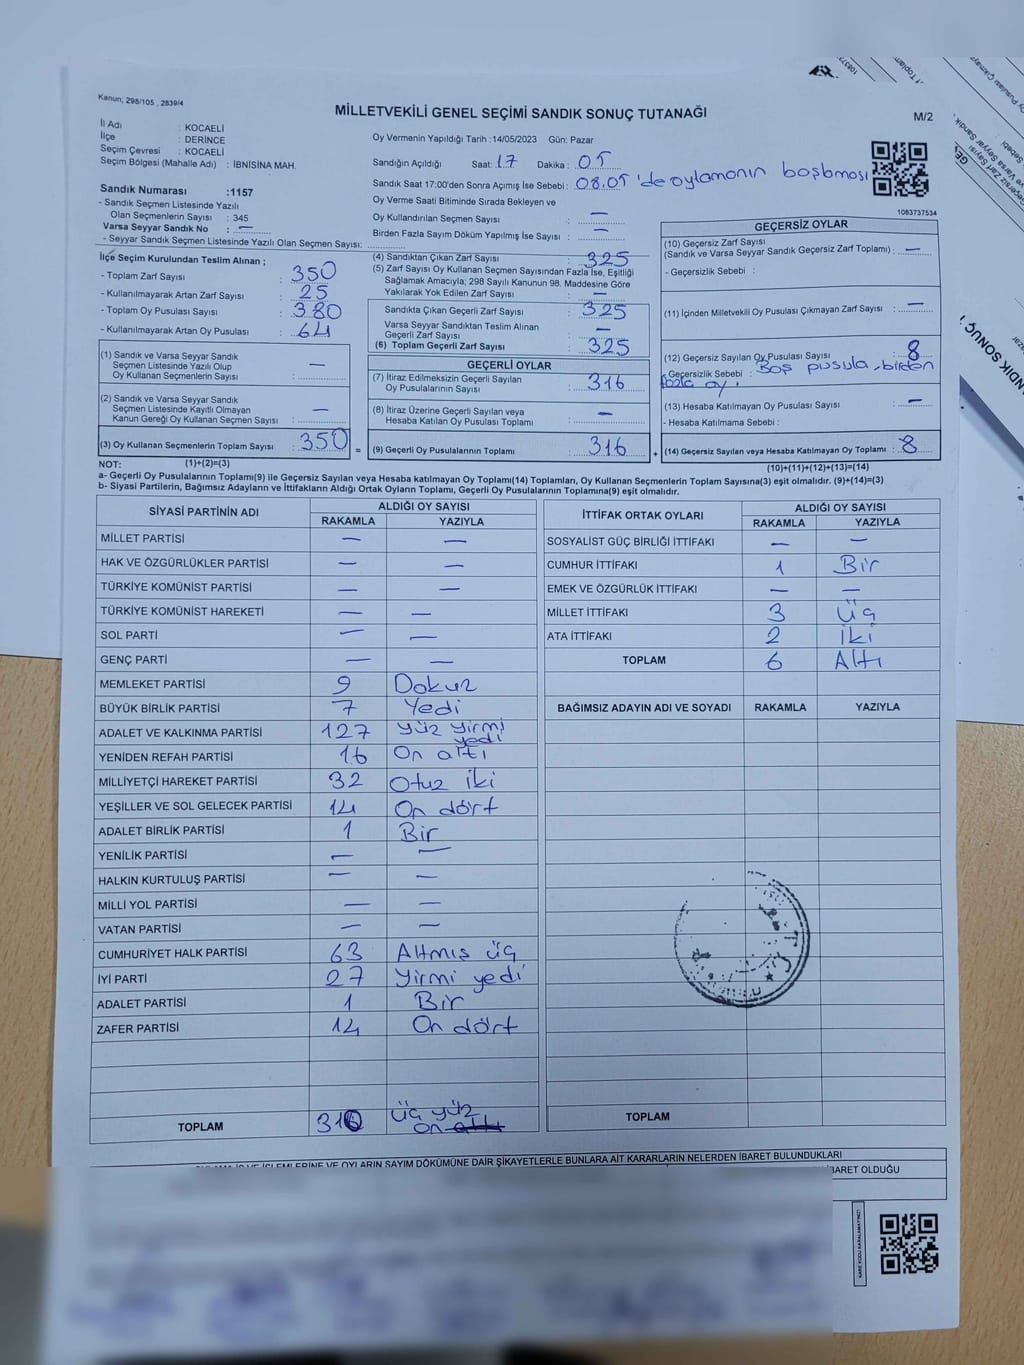 Kanun; 298/105 , 2839/4
MİLLETVEKİLİ GENEL SEÇİMİ SANDIK SONUÇ TUTANAĞI
M/2
İl Adı : KOCAELİ
İlçe : DERİNCE
Seçim Çevresi : KOCAELİ
Seçim Bölgesi (Mahalle Adı) : İBNİSİNA MAH.
Oy Vermenin Yapıldığı Tarih : 14/05/2023 Gün: Pazar
Sandığın Açıldığı Saat: 17 Dakika : 05
Sandık Saat 17:00'den Sonra Açımış İse Sebebi : 08.05 'de oylamanın başlaması
Oy Verme Saati Bitiminde Sırada Bekleyen ve
Oy Kullandırılan Seçmen Sayısı : —
Birden Fazla Sayım Döküm Yapılmış İse Sayısı : —
1083737534
Sandık Numarası :1157
- Sandık Seçmen Listesinde Yazılı
Olan Seçmenlerin Sayısı : 345
Varsa Seyyar Sandık No : —
- Seyyar Sandık Seçmen Listesinde Yazılı Olan Seçmen Sayısı:
İlçe Seçim Kurulundan Teslim Alınan ;
- Toplam Zarf Sayısı : 350
- Kullanılmayarak Artan Zarf Sayısı : 25
- Toplam Oy Pusulası Sayısı : 380
- Kullanılmayarak Artan Oy Pusulası : 64
(1) Sandık ve Varsa Seyyar Sandık
Seçmen Listesinde Yazılı Olup
Oy Kullanan Seçmenlerin Sayısı : —
(2) Sandık ve Varsa Seyyar Sandık
Seçmen Listesinde Kayıtlı Olmayan
Kanun Gereği Oy Kullanan Seçmen Sayısı : —
(3) Oy Kullanan Seçmenlerin Toplam Sayısı : 350
(1)+(2)=(3)
(4) Sandıktan Çıkan Zarf Sayısı : 325
(5) Zarf Sayısı Oy Kullanan Seçmen Sayısından Fazla İse, Eşitliği
Sağlamak Amacıyla; 298 Sayılı Kanunun 98. Maddesine Göre
Yakılarak Yok Edilen Zarf Sayısı : —
Sandıkta Çıkan Geçerli Zarf Sayısı : 325
Varsa Seyyar Sandıktan Teslim Alınan
Geçerli Zarf Sayısı : —
(6) Toplam Geçerli Zarf Sayısı : 325
GEÇERLİ OYLAR
(7) İtiraz Edilmeksizin Geçerli Sayılan
Oy Pusulalarının Sayısı : 316
(8) İtiraz Üzerine Geçerli Sayılan veya
Hesaba Katılan Oy Pusulası Toplamı : —
= (9) Geçerli Oy Pusulalarının Toplamı : 316 +
GEÇERSİZ OYLAR
(10) Geçersiz Zarf Sayısı
(Sandık ve Varsa Seyyar Sandık Geçersiz Zarf Toplamı) : —
- Geçersizlik Sebebi :
(11) İçinden Milletvekili Oy Pusulası Çıkmayan Zarf Sayısı : —
(12) Geçersiz Sayılan Oy Pusulası Sayısı : 8
- Geçersizlik Sebebi : Boş pusula, birden
fazla oy.
(13) Hesaba Katılmayan Oy Pusulası Sayısı : —
- Hesaba Katılmama Sebebi :
(14) Geçersiz Sayılan veya Hesaba Katılmayan Oy Toplamı : 8
(10)+(11)+(12)+(13)=(14)
NOT:
a- Geçerli Oy Pusulalarının Toplamı(9) ile Geçersiz Sayılan veya Hesaba katılmayan Oy Toplamı(14) Toplamları, Oy Kullanan Seçmenlerin Toplam Sayısına(3) eşit olmalıdır. (9)+(14)=(3)
b- Siyasi Partilerin, Bağımsız Adayların ve İttifakların Aldığı Ortak Oyların Toplamı, Geçerli Oy Pusulalarının Toplamına(9) eşit olmalıdır.
SİYASİ PARTİNİN ADI ALDIĞI OY SAYISI
RAKAMLA YAZIYLA
MİLLET PARTİSİ — —
HAK VE ÖZGÜRLÜKLER PARTİSİ — —
TÜRKİYE KOMÜNİST PARTİSİ — —
TÜRKİYE KOMÜNİST HAREKETİ — —
SOL PARTİ — —
GENÇ PARTİ — —
MEMLEKET PARTİSİ 9 Dokuz
BÜYÜK BİRLİK PARTİSİ 7 Yedi
ADALET VE KALKINMA PARTİSİ 127 Yüz yirmi
yedi
YENİDEN REFAH PARTİSİ 16 On altı
MİLLİYETÇİ HAREKET PARTİSİ 32 Otuz iki
YEŞİLLER VE SOL GELECEK PARTİSİ 14 On dört
ADALET BİRLİK PARTİSİ 1 Bir
YENİLİK PARTİSİ — —
HALKIN KURTULUŞ PARTİSİ — —
MİLLİ YOL PARTİSİ — —
VATAN PARTİSİ — —
CUMHURİYET HALK PARTİSİ 63 Altmış üç
İYİ PARTİ 27 Yirmi yedi
ADALET PARTİSİ 1 Bir
ZAFER PARTİSİ 14 On dört
TOPLAM 310 üç yüz
on altı
İTTİFAK ORTAK OYLARI ALDIĞI OY SAYISI
RAKAMLA YAZIYLA
SOSYALİST GÜÇ BİRLİĞİ İTTİFAKI — —
CUMHUR İTTİFAKI 1 Bir
EMEK VE ÖZGÜRLÜK İTTİFAKI — —
MİLLET İTTİFAKI 3 Üç
ATA İTTİFAKI 2 İki
TOPLAM 6 Altı
BAĞIMSIZ ADAYIN ADI VE SOYADI RAKAMLA YAZIYLA
TOPLAM
İŞLEMLERİNE VE OYLARIN SAYIM DÖKÜMÜNE DAİR ŞİKAYETLERLE BUNLARA AİT KARARLARIN NELERDEN İBARET BULUNDUKLARI
İBARET OLDUĞU
KARE KODU KARALAMAYINIZ!